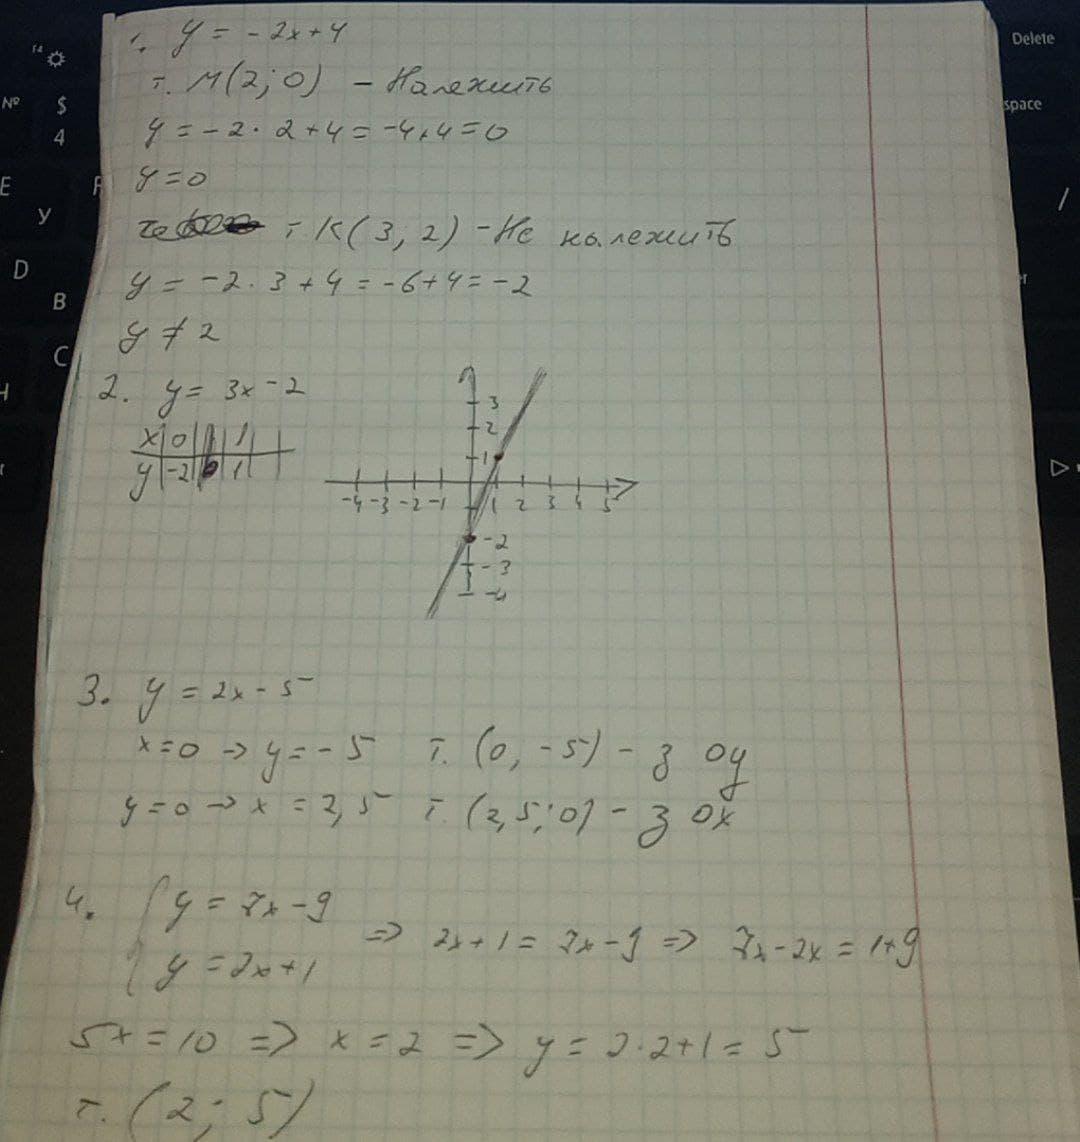 1. y = -2x+4
т. M(2;0) - Належить
y = -2·2+4=-4+4=0
y=0
т K(3,2) -Не належить
y = -2·3+4=-6+4=-2
y ≠ 2
2. y= 3x-2
x 0 1
y -2 1
3
2
1
-4 -3 -2 -1 1 2 3 4 5
-2
-3
-4
3. y = 2x-5
x=0 → y=-5 т. (0,-5) - з oy
y=0 → x = 2,5 т. (2,5;0) - з ox
4. { y = 7x-9
y = 2x+1 => 2x+1 = 7x-9 => 7x-2x = 1+9
5x=10 => x=2 => y = 2·2+1=5
т. (2; 5)
Delete
space
№ $
4
F4
E
У
F
D
B
C
/